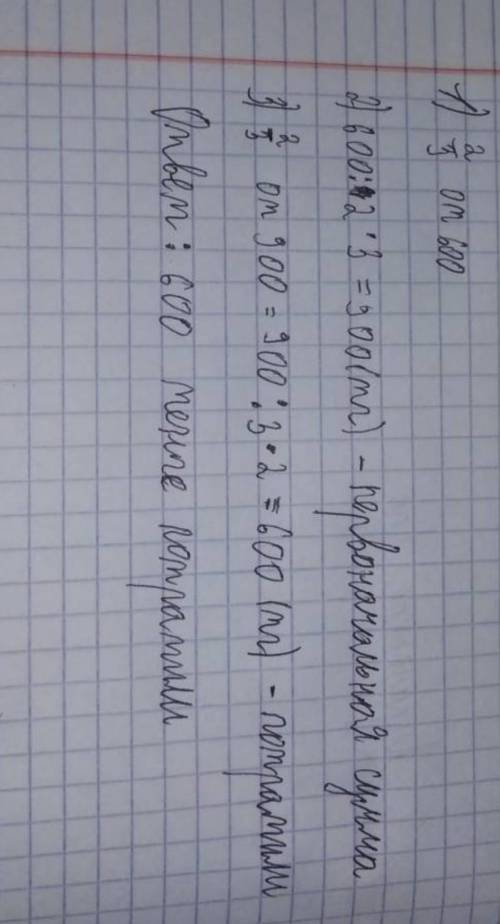 1) 2/3 от 600
2) 600 : 2 · 3 = 900 (тг) - первоначальная сумма
3) 2/3 от 900 = 900 : 3 · 2 = 600 (тг) - потратили
Ответ : 600 тенге потратили